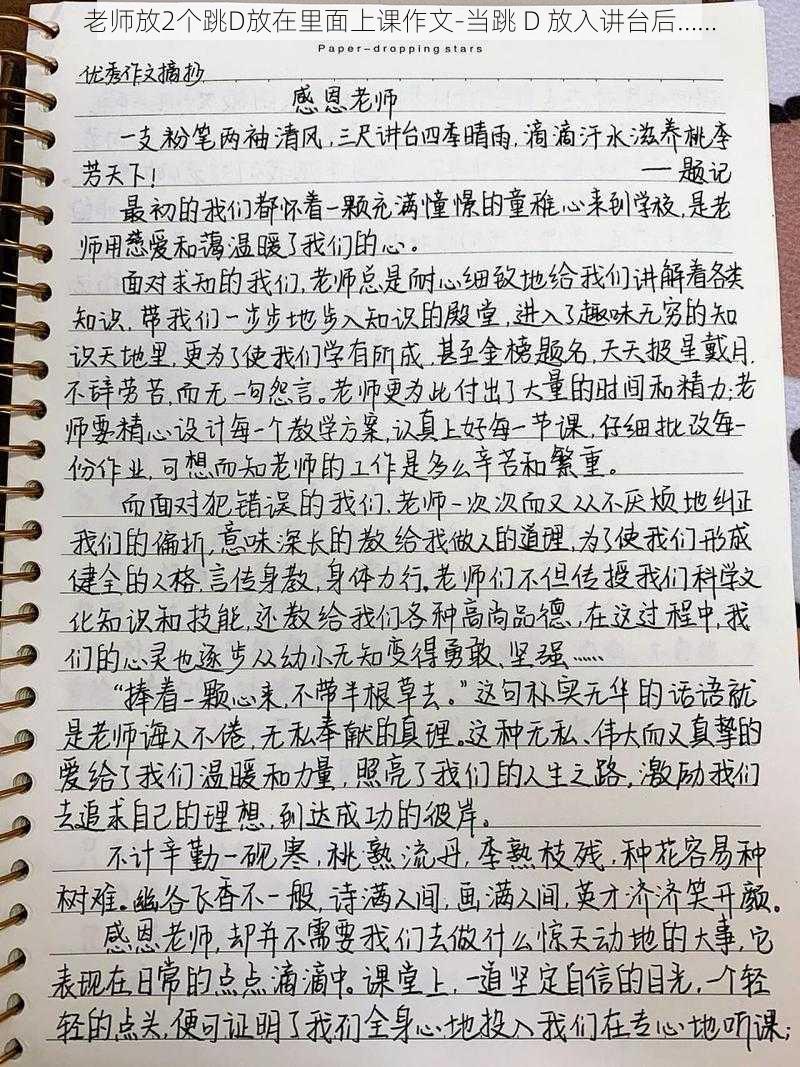 老师放2个跳D放在里面上课作文-当跳 D 放入讲台后……
Paper-dropping stars
优秀作文摘抄
感恩老师
一支粉笔两袖清风,三尺讲台四季晴雨,滴滴汗水滋养桃李
芳天下!
——题记
最初的我们都怀着一颗充满憧憬的童稚心来到学校,是老
师用慈爱和蔼温暖了我们的心。
面对求知的我们,老师总是耐心细致地给我们讲解着各类
知识,带我们一步步地步入知识的殿堂,进入了趣味无穷的知
识天地里,更为了使我们学有所成,甚至金榜题名,天天披星戴月,
不辞劳苦,而无一句怨言。老师更为此付出了大量的时间和精力;老
师要精心设计每一个教学方案,认真上好每一节课,仔细批改每一
份作业,可想而知老师的工作是多么辛苦和繁重。
而面对犯错误的我们,老师一次次而又从不厌烦地纠正
我们的偏折,意味深长的教给我做人的道理,为了使我们形成
健全的人格,言传身教,身体力行。老师们不但传授我们科学文
化知识和技能,还教给我们各种高尚品德,在这过程中,我
们的心灵也逐步从幼小无知变得勇敢、坚强……
“捧着一颗心来,不带半根草去。”这句朴实无华的话语就
是老师诲人不倦,无私奉献的真理。这种无私、伟大而又真挚的
爱给了我们温暖和力量,照亮了我们的人生之路,激励我们
去追求自己的理想,到达成功的彼岸。
不计辛勤一砚寒,桃熟流丹,李熟枝残,种花容易种
树难。幽谷飞香不一般,诗满人间,画满人间,英才济济笑开颜。
感恩老师,却并不需要我们去做什么惊天动地的大事,它
表现在日常的点点滴滴中。课堂上,一道坚定自信的目光,一个轻
轻的点头,便可证明了我们全身心地投入我们在专心地听课;